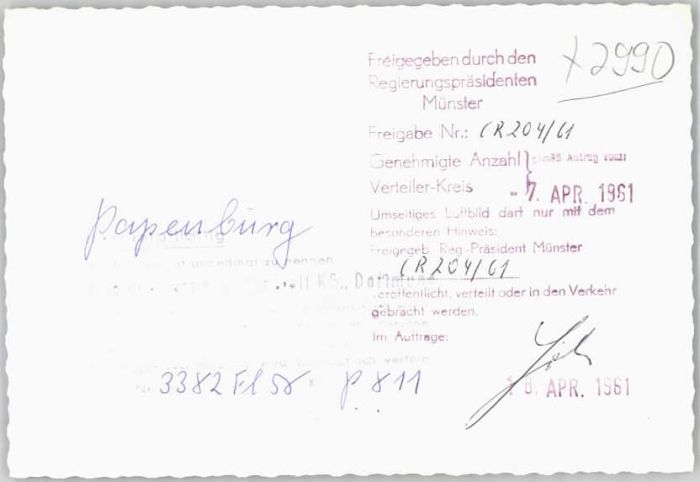 x2990
Freigegeben durch den
Regierungspräsidenten
Münster
Freigabe Nr.: CR 204/61
Genehmigte Anzahl } gemäß Antrag vom:
Verteiler-Kreis - 7. APR. 1961
Umseitiges Luftbild darf nur mit dem
besonderen Hinweis:
Freigegeb. Reg.-Präsident Münster
CR 204/61
veröffentlicht, verteilt oder in den Verkehr
gebracht werden.
Im Auftrage:
18. APR. 1961
Papenburg
KG., Dortmund
3382 Fl 58 x P 811